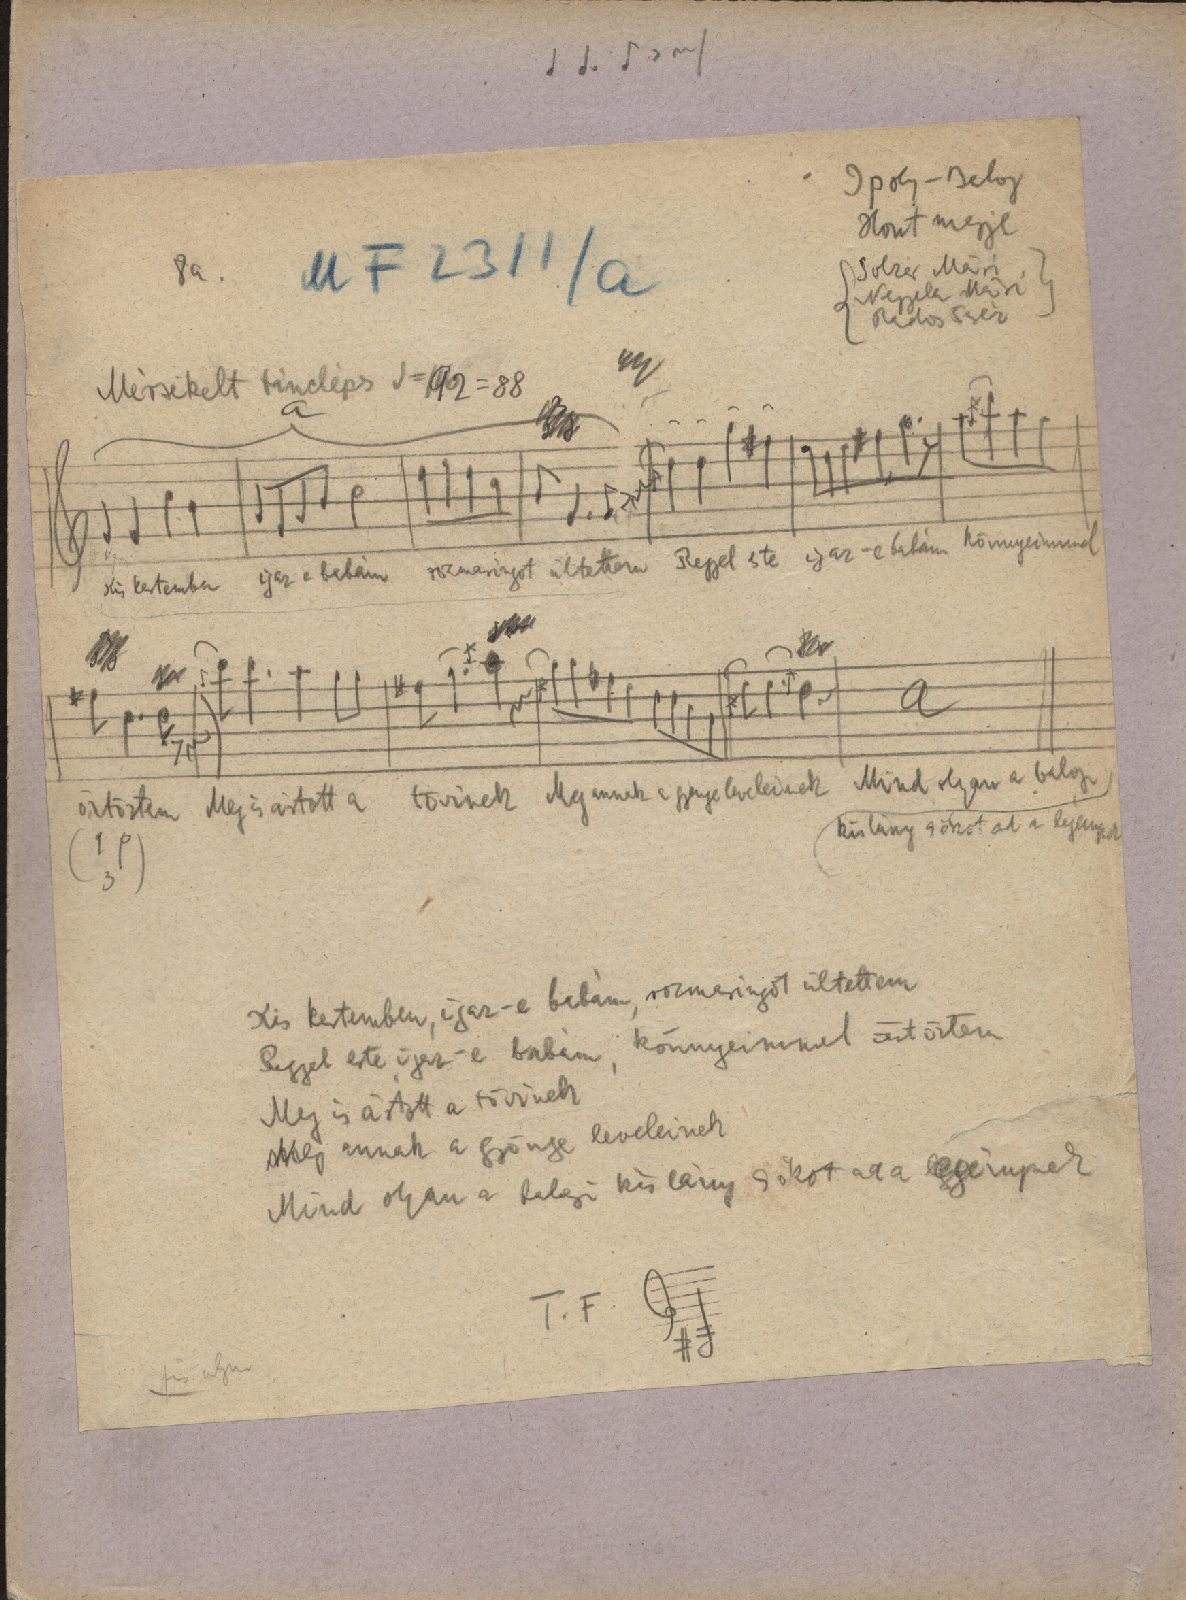 Ipoly-Balog
Hont megye
8a.
MF 2311/a
Mári
Mári
Mérsékelt tánclépés ♩= 92 = 88
a
Kis kertemben igaz-e babám rozmaringot ültettem Reggel este igaz-e babám könnyeimmel
a
öntöztem Meg is ástott a tövinek Meg annak a gyönge leveleinek Mind olyan a balogi
kislány csókot ad a legénynek
3
Kis kertemben, igaz-e babám, rozmaringot ültettem
Reggel este igaz-e babám, könnyeimmel öntöztem
Meg is ástott a tövinek
Meg annak a gyönge leveleinek
Mind olyan a balogi kis lány csókot ad a legénynek
T.F